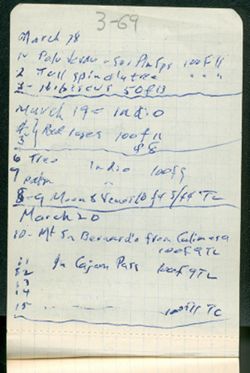 3-69
March 18
1 Palo Verde - 100 f 11
2 Tall spindly tree " " "
3 - Hibiscus 50 f 13
March 19 - Indio
4
5 Red roses 100 f 11
f 8
6 Tree Indio 100 f 9
7 palm "
8-9 Moon & Venus 10 f 4 5/4 4" TL
March 20
10 - Mt Sn Bernardo from Calimesa
100 f 9 TL
11
12 In Cajon Pass 100 f 9 TL
13
14
15 100 f 11 TL